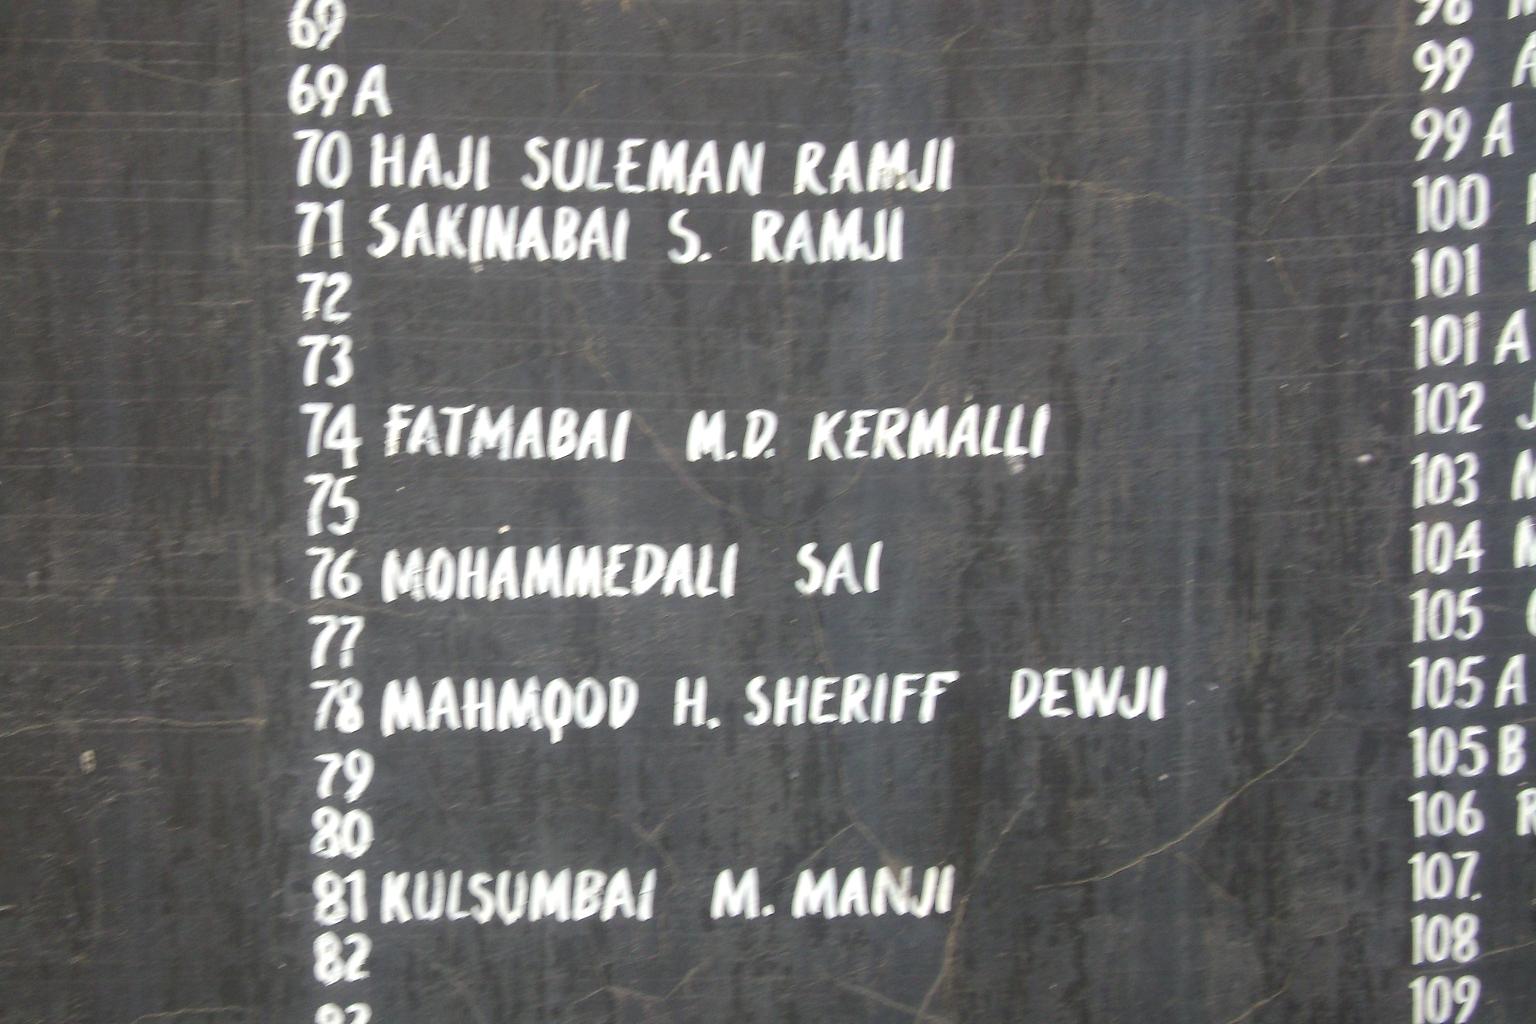 69
69 A
70 HAJI SULEMAN RAMJI
71 SAKINABAI S. RAMJI
72
73
74 FATMABAI M.D. KERMALLI
75
76 MOHAMMEDALI SAI
77
78 MAHMOOD H. SHERIFF DEWJI
79
80
81 KULSUMBAI M. MANJI
82
98
99
99 A
100
101
101 A
102
103
104
105
105 A
105 B
106
107.
108
109